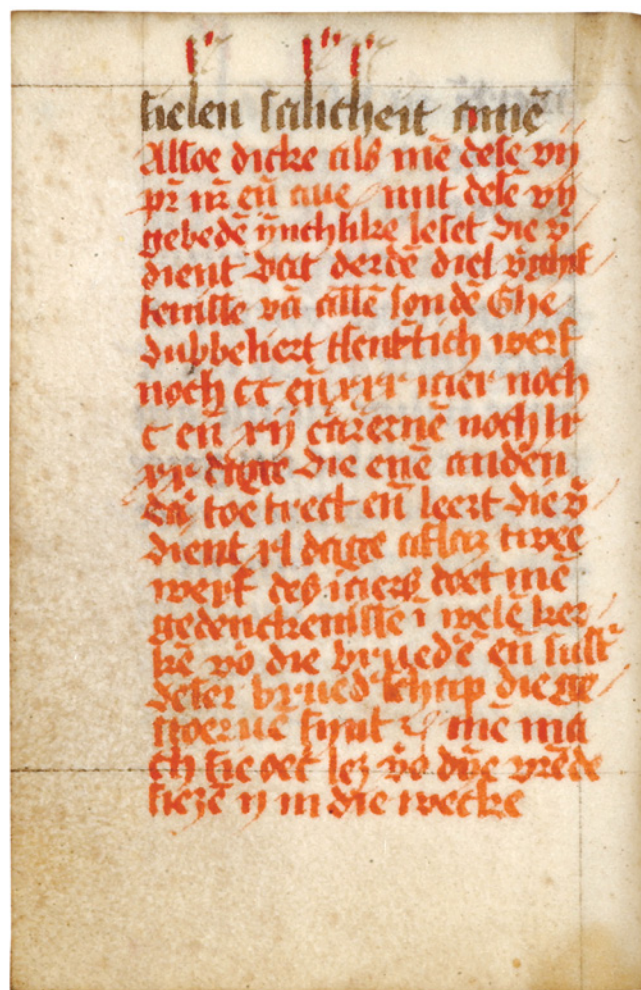 sielen salicheit amē
Alsoe dicke als mē dese vij
pr̄ nr̄ eñ aue mit desē vij
gebedē ynchlike leset die v̄
dient dat derdē diel
kenisse vā allē sondē Ghe
dubbeliert werf
noch cc eñ xxx iaer noch
c eñ xij carenē noch lx
xx dage die enē anderē
dar toe trect eñ leert die v̄
dient xl dage aflaz twee
werf des iaers doet mē
gedenckenisse ī welē ker
kē vō die bruedē eñ sust
deser brueder schap die ge
stoeruē synt mē ma
ch sie oec lez vō dye vrēde
siezē ij in die wecke